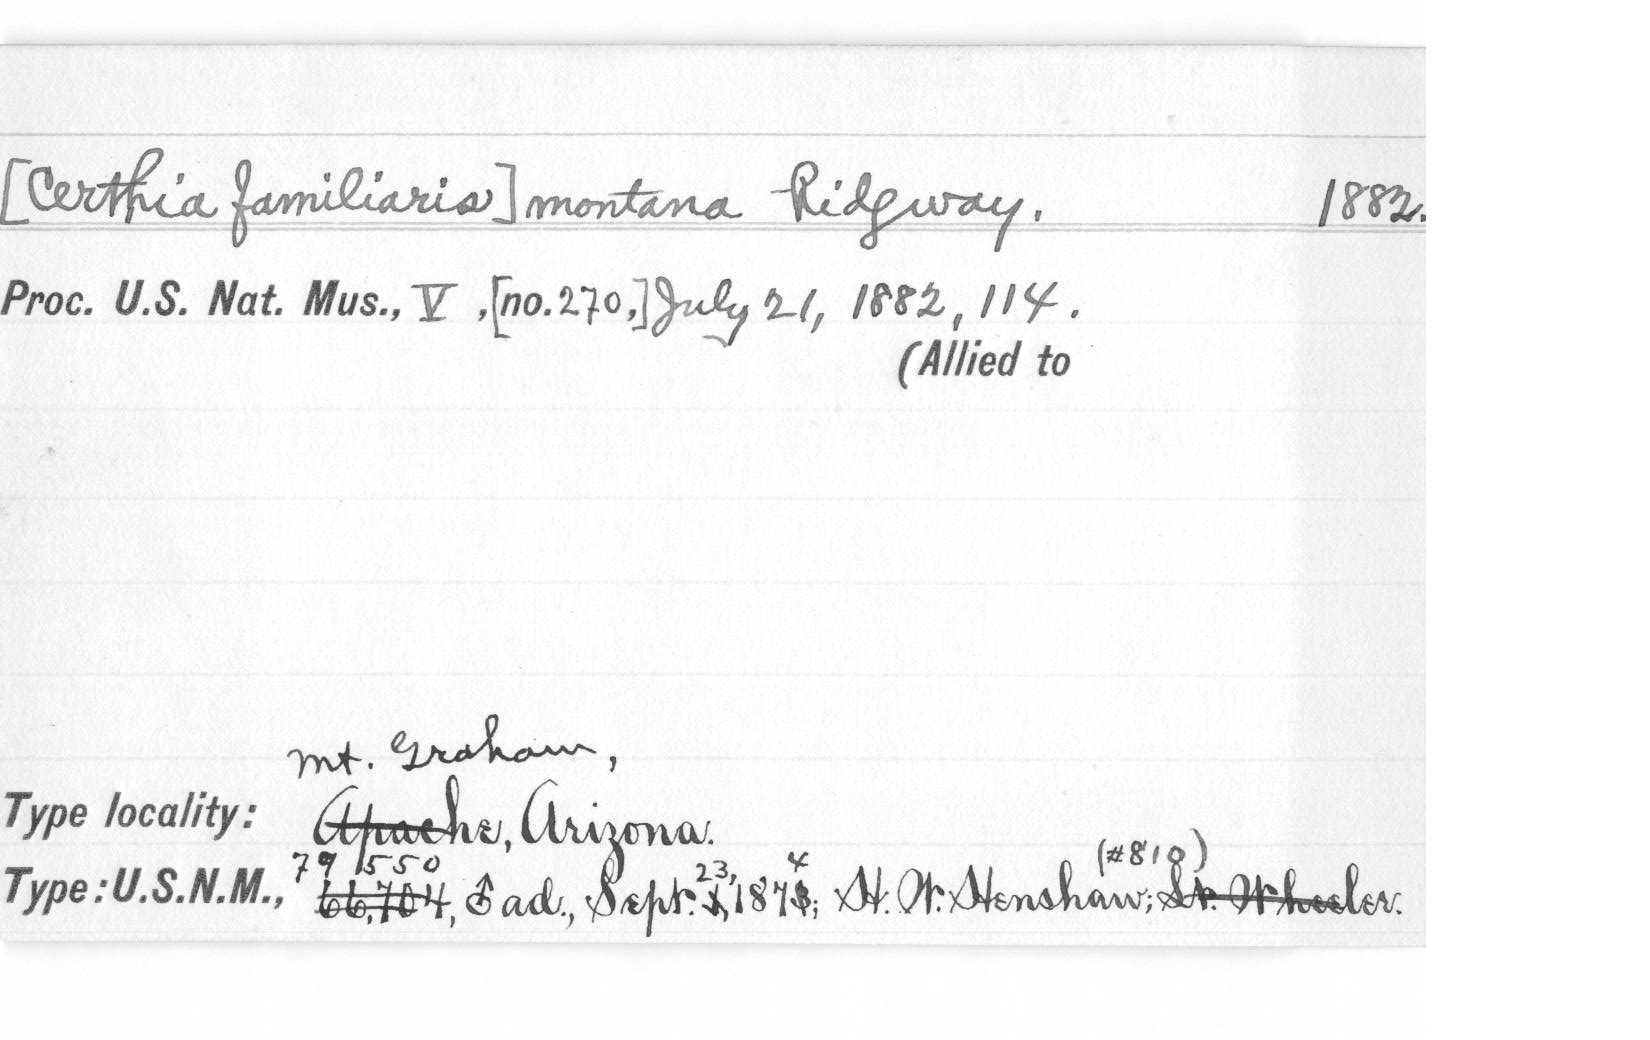 [Certhia familiaris] montana Ridgway. 1882.
Proc. U.S. Nat. Mus., V , [no.270,] July 21, 1882, 114.
(Allied to
Mt. Graham,
Type locality: Apache, Arizona.
79 550 23, 4 (#810)
Type: U.S.N.M., 66,704, ♂ ad., Sept. 1, 1873; H. W. Henshaw; Lt. Wheeler.